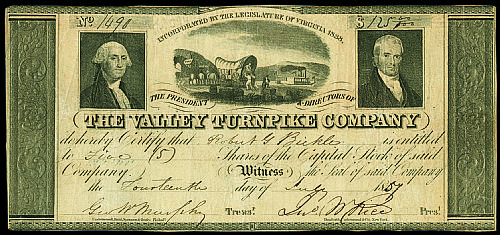 No 1490
INCORPORATED BY THE LEGISLATURE OF VIRGINIA 1838.
$125
THE PRESIDENT & DIRECTORS OF
THE VALLEY TURNPIKE COMPANY
do hereby Certify that Robert G Bickle is entitled
to Five (5) Shares of the Capital Stock of said
Company. Witness the Seal of said Company
the Fourteenth day of July 1857
Geo W Murphy Treasr. Jno. W Rice Prest.